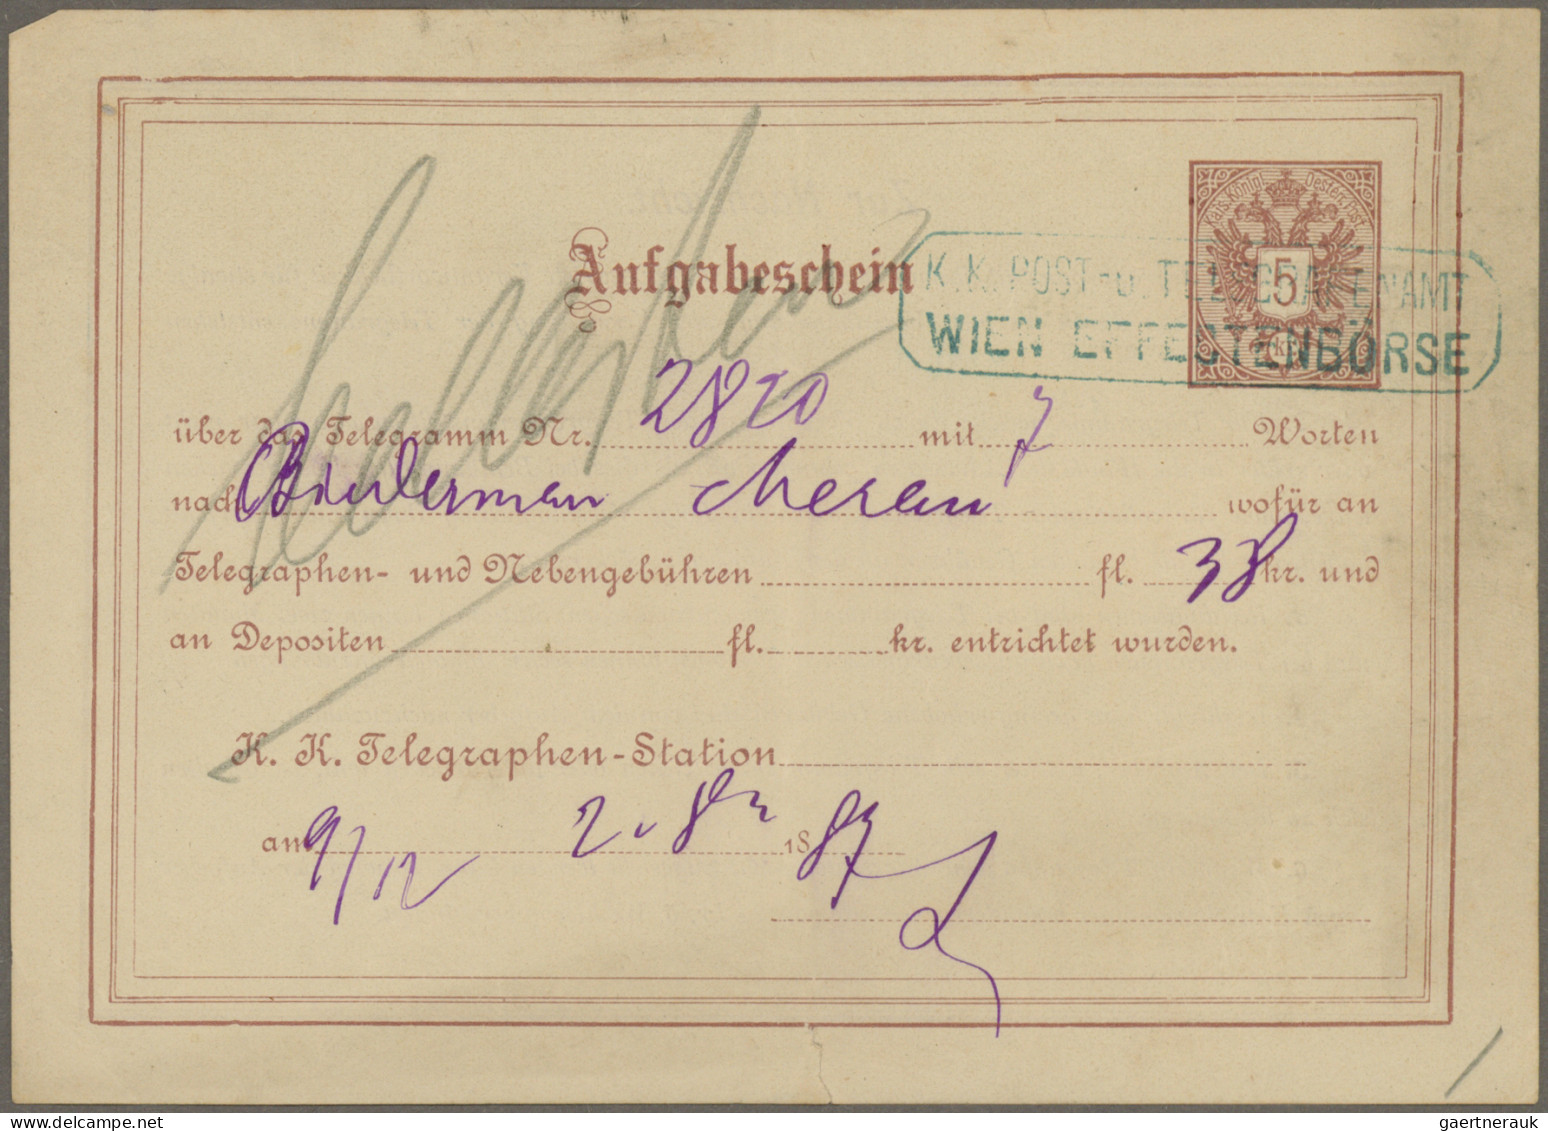 Kais. Königl. Oesterr. Post
5 kr
Aufgabeschein
K. K. POST- U. TELEGRAFENAMT
WIEN EFFECTENBÖRSE
über das Telegramm Nr. 2820 mit 7 Worten
nach Biedermann Meran wofür an
Telegraphen- und Nebengebühren fl. 38 kr. und
an Depositen fl. kr. entrichtet wurden.
K. K. Telegraphen-Station
am 9/12 1887
gaertnerauk